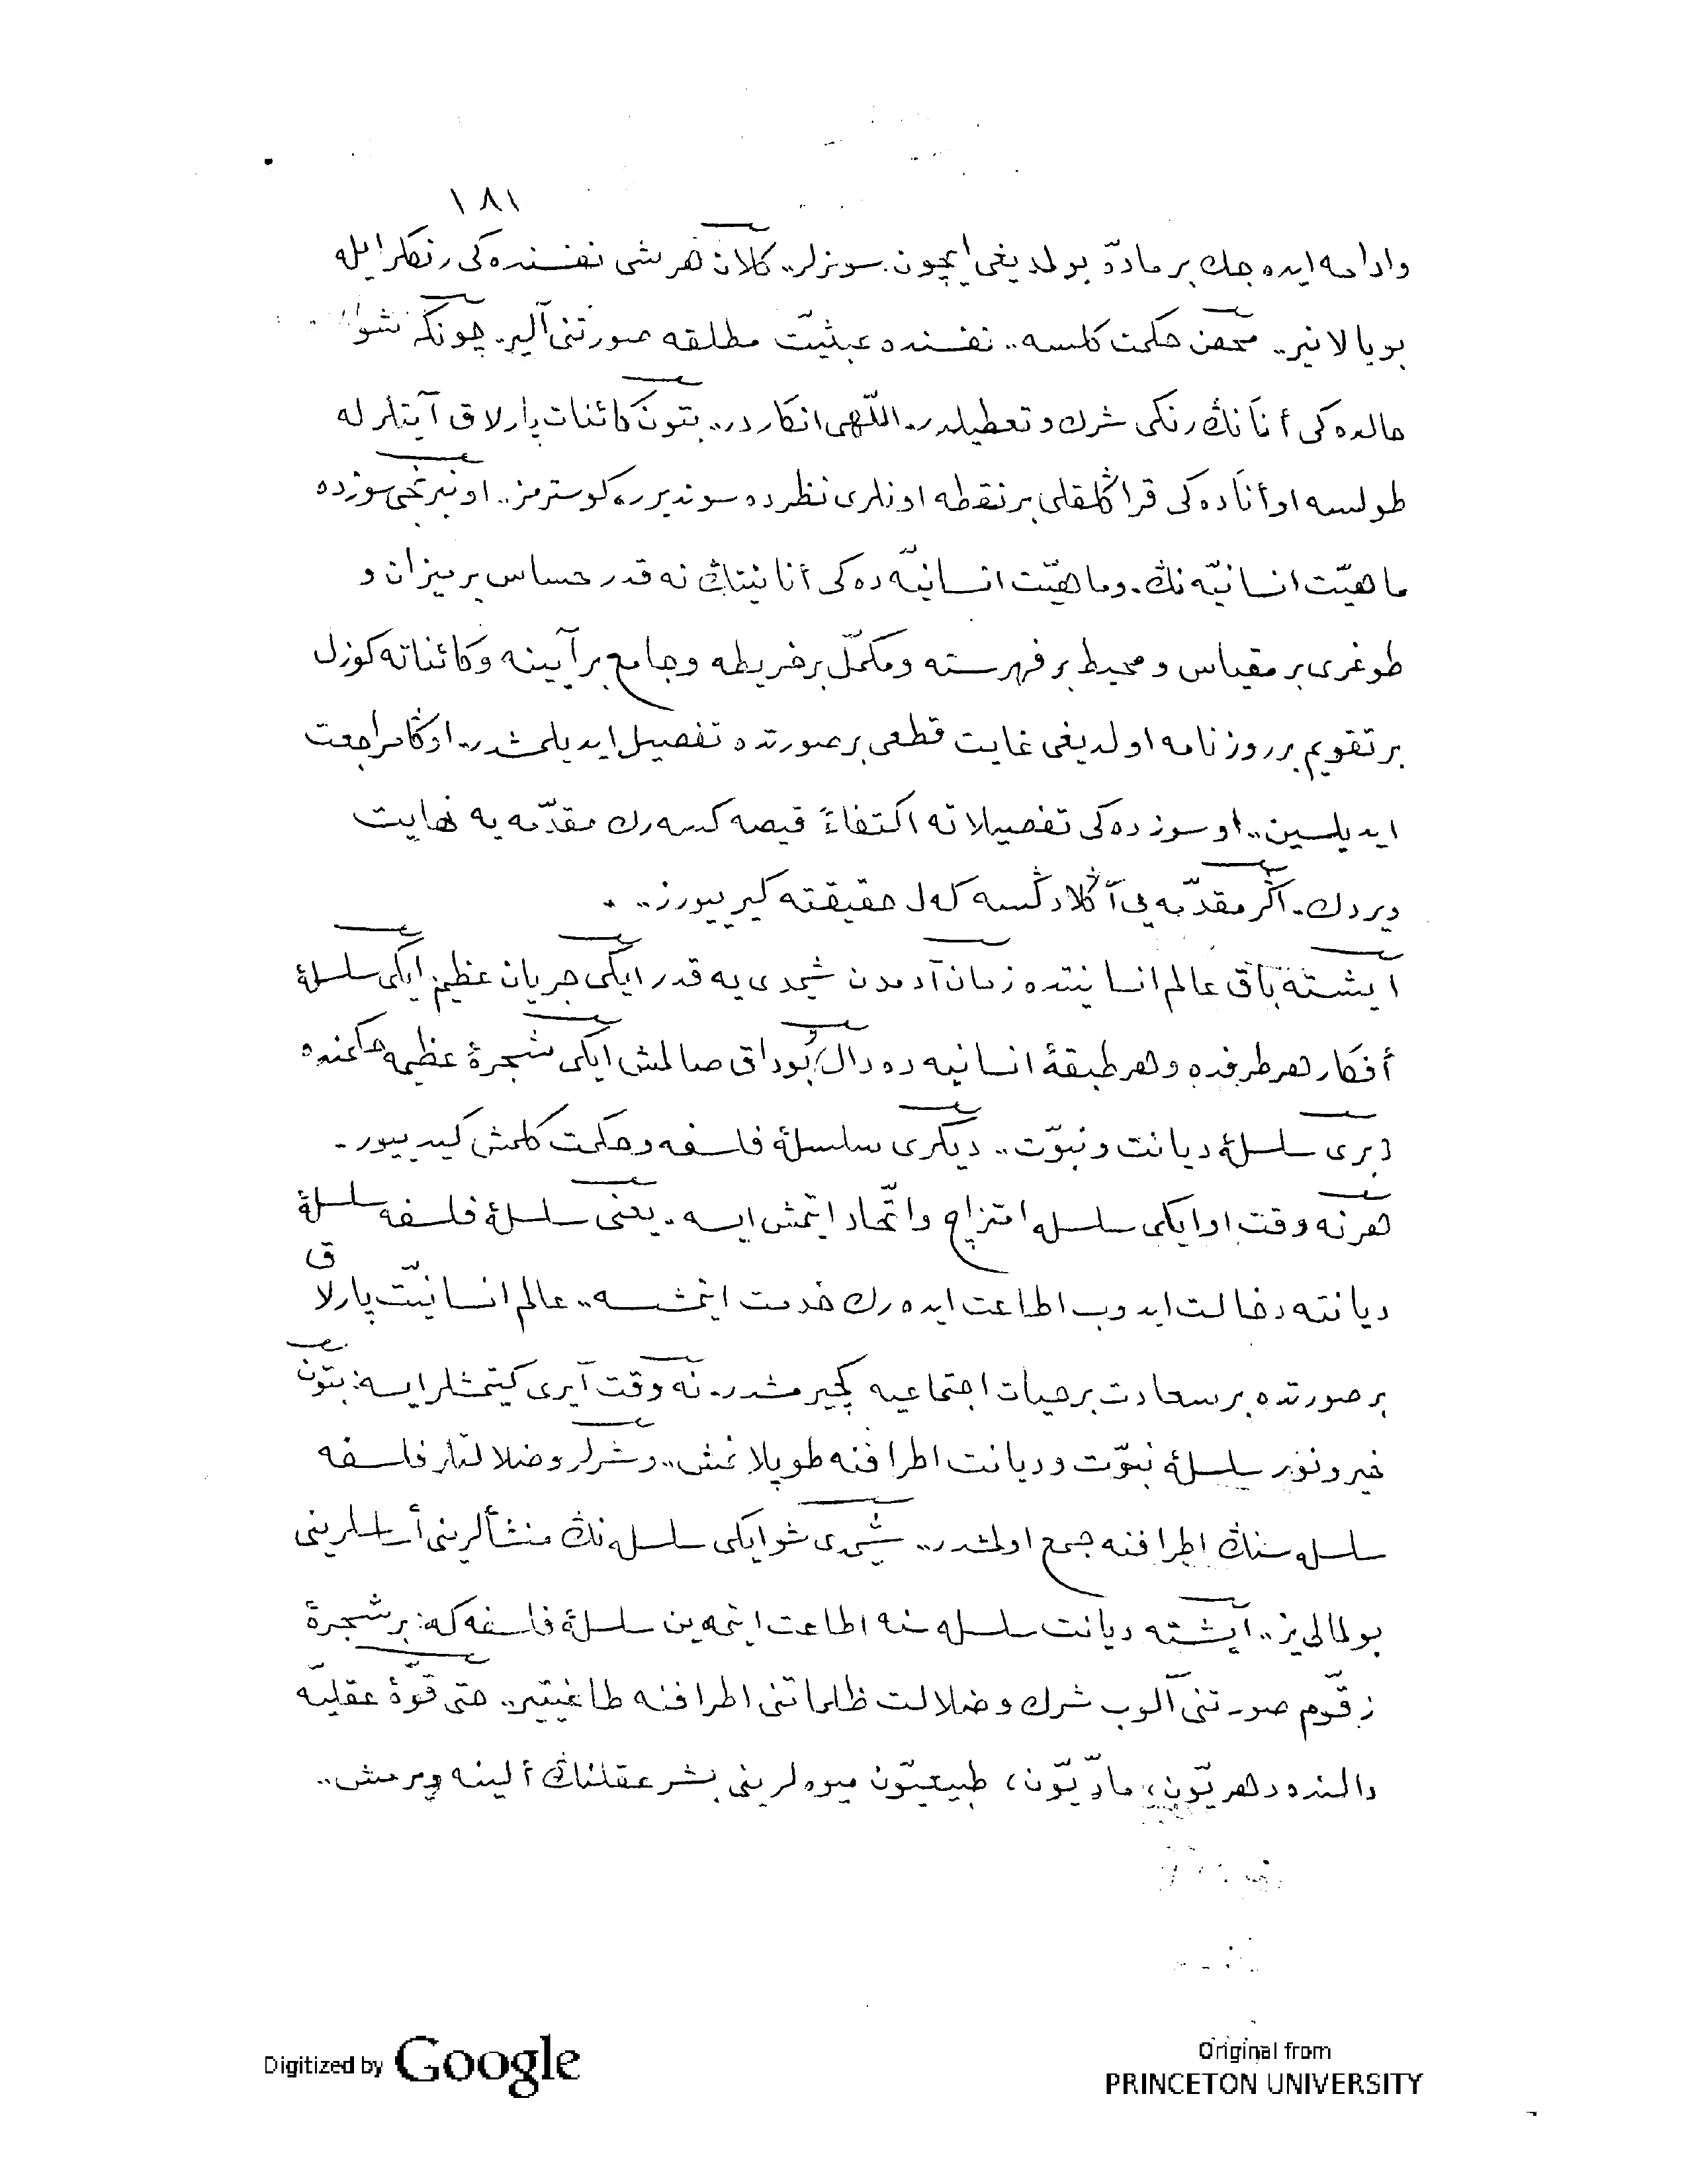 ١٨١
وادامه ايده جك بر مادّه بولمديغى ايچون سونرلر.. كلان هر شى نفسنده كى رنكلر ايله
بويالانير.. محض حكمت كلسه.. نفسنده عبثيّت مطلقه صورتنى آلير. چونكه شو
حالده كى أنانڭ رنكى شرك و تعطيلدر. اللّهى انكاردر.. بتون كائنات پارلاق آيتلرله
طولسه او أناده كى قراڭلقلى بر نقطه اونلرى نظرده سونديرر، كوسترمز.. اون برنجى سوزده
ماهيّت انسانيّه نڭ. وماهيّت انسانيّه ده كى أنانيتڭ نه قدر حساس بر ميزان و
طوغرى بر مقياس و محيط بر فهرسته ومكمّل بر خريطه وجامع بر آيينه وكائناته كوزل
بر تقويم بر روزنامه اولديغى غايت قطعى بر صورتده تفصيل ايديلمشدر. اوڭا مراجعت
ايديلسين.. او سوزده كى تفصيلاته اكتفاءً قيصه كسه رك مقدّمه يه نهايت
ويردك. اڭر مقدّمه يى آڭلادڭسه كل حقيقته كيرييورز..
ايشته باق عالم انسانيتده زمان آدمدن شيمدى يه قدر ايكى جريان عظيم ايكى سلسلهٔ
أفكار هر طرفده و هر طبقهٔ انسانيه ده دال بوداق صالمش ايكى شجرهٔ عظيمه حكمنده
برى سلسلهٔ ديانت و نبوّت.. ديكرى سلسلهٔ فلسفه و حكمت كلمش كيدييور.
هر نه وقت او ايكى سلسله امتزاج واتّحاد ايتمش ايسه. يعنى سلسلهٔ فلسفه سلسلهٔ
ديانته دخالت ايدوب اطاعت ايده رك خدمت ايتمشسه.. عالم انسانيّت پارلاق
بر صورتده بر سعادت بر حيات اجتماعيه كچيرمشدر. نه وقت آيرى كيتمشلر ايسه: بتون
خير و نور سلسلهٔ نبوّت و ديانت اطرافنه طوپلانمش.. و شرلر و ضلالتلر فلسفه
سلسله سنڭ اطرافنه جمع اولمشدر.. شيمدى شو ايكى سلسله نڭ منشألرينى أساسلرينى
بولمالى يز.. ايشته ديانت سلسله سنه اطاعت ايتمه ين سلسلهٔ فلسفه كه: بر شجرهٔ
زقّوم صورتنى آلوب شرك و ضلالت ظلماتنى اطرافنه طاغيتير.. حتى قوّهٔ عقليّه
دالنده دهريّون، مادّيّون، طبيعيّون ميوه لرينى بشر عقلنڭ ألينه ويرمش..
Digitized by Google
Original from
PRINCETON UNIVERSITY